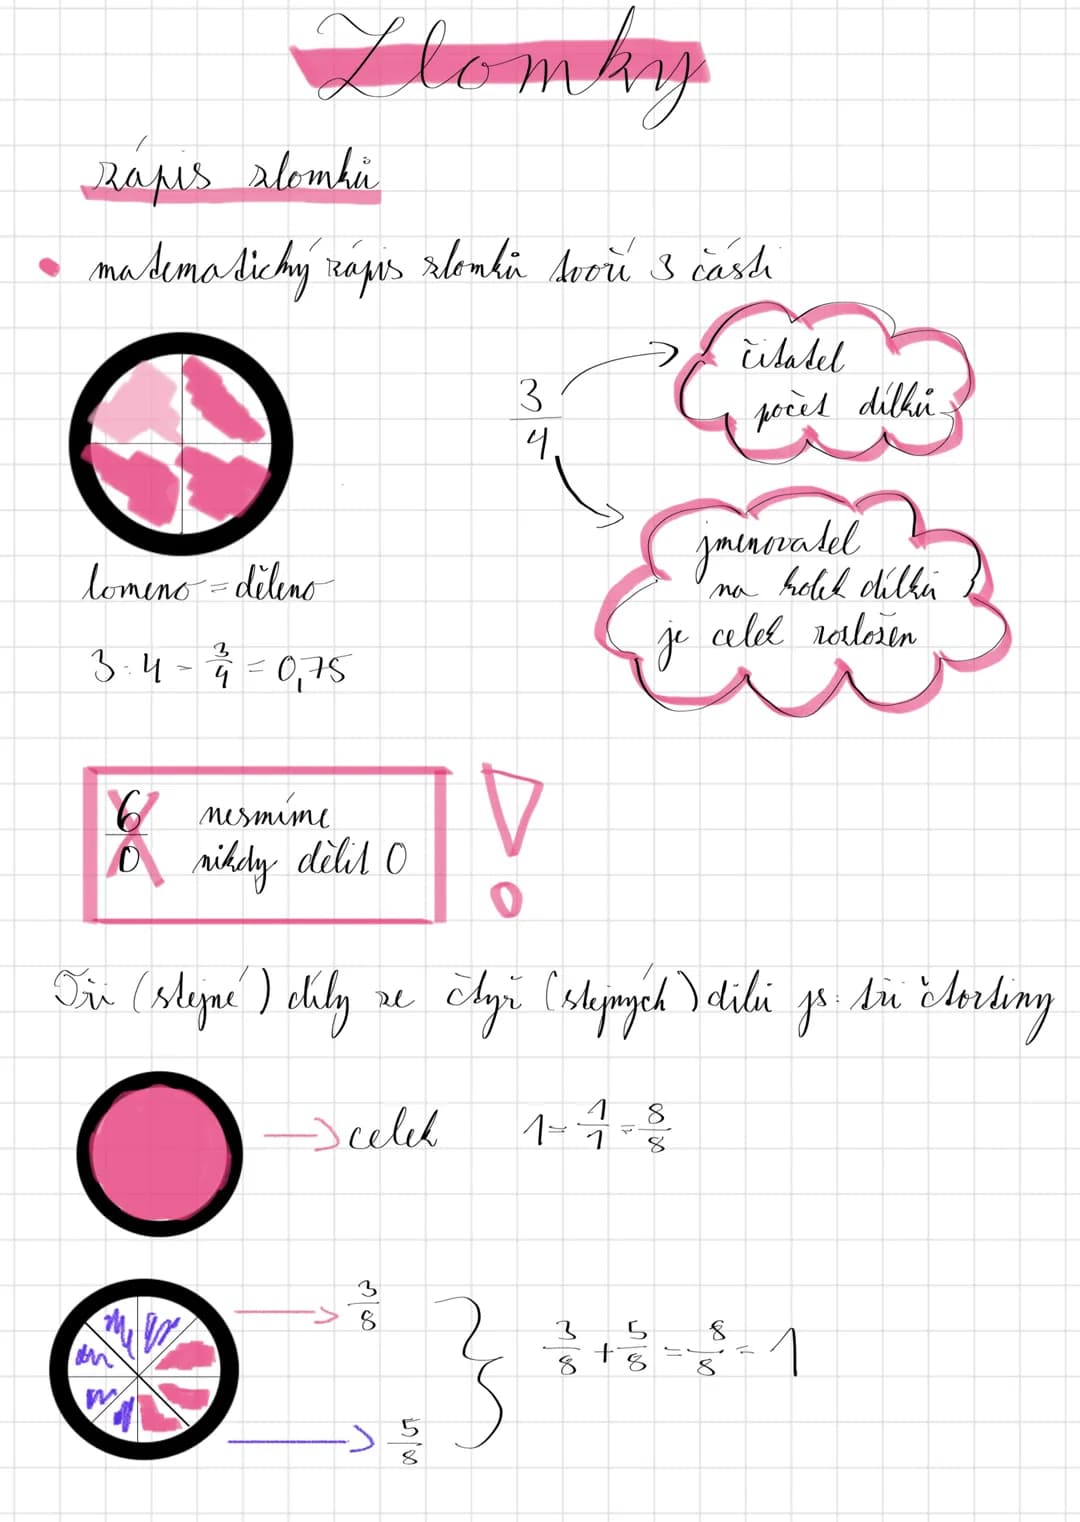 Zlomky
zápis zlomků
• matematický zápis zlomků tvoří 3 části
čitatel
počet dílků
3
4
jmenovatel
na kolik dílků
je celek rozložen
lomeno = děleno
3 : 4 = 3/4 = 0,75
6/0 nesmíme
nikdy dělit 0
!
Tři (stejné) díly ze čtyř (stejných) dílů js: tři čtvrtiny
→ celek 1 = 1/1 = 8/8
3/8
3/8 + 5/8 = 8/8 = 1
5/8